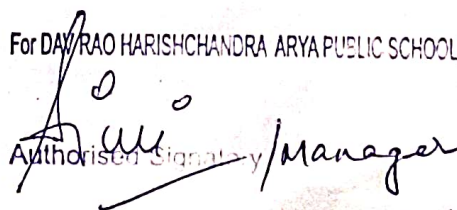 For DAV RAO HARISHCHANDRA ARYA PUBLIC SCHOOL
Authorised Signatory / Manager